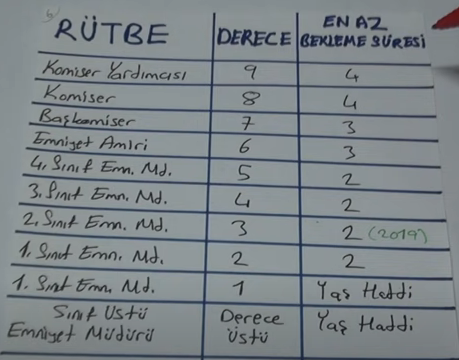 RÜTBE DERECE EN AZ BEKLEME SÜRESİ
Komiser Yardımcısı 9 4
Komiser 8 4
Başkomiser 7 3
Emniyet Amiri 6 3
4. Sınıf Emn. Md. 5 2
3. Sınıf Emn. Md. 4 2
2. Sınıf Emn. Md. 3 2 (2019)
1. Sınıf Emn. Md. 2 2
1. Sınıf Emn. Md. 1 Yaş Haddi
Sınıf Üstü Emniyet Müdürü Derece Üstü Yaş Haddi